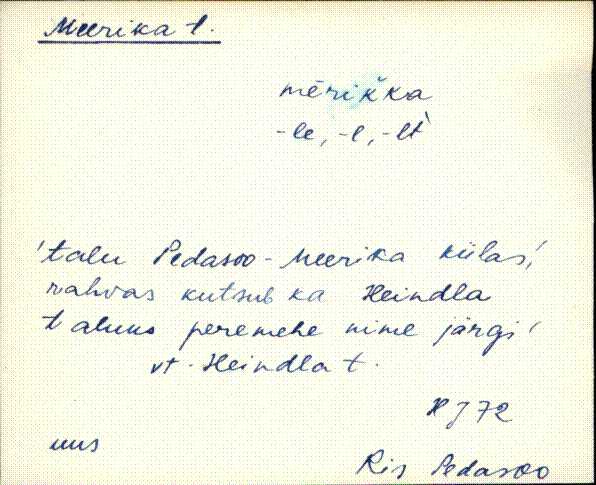 Meerika t.
mēriǩka
-le, -l, -lt`
'talu Pedasoo-Meerika külas,'
rahvas kutsub ka Heindla
taluks peremehe nime järgi'
vt. Heindla t.
HJ 72
uus
Ris Pedasoo